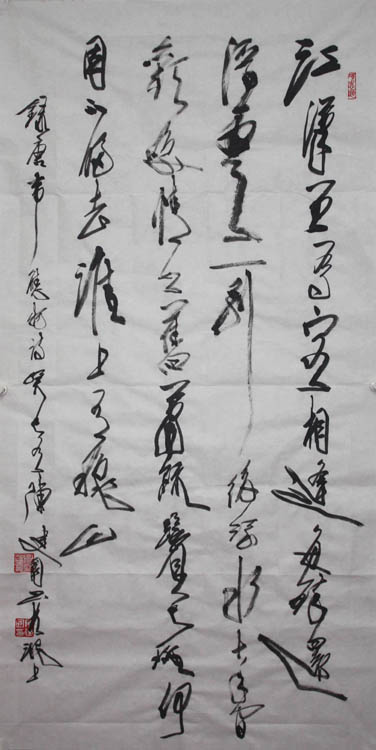 江漢曾為客相逢每醉還
浮雲一別後流水十年間
歡笑情如舊蕭疏鬢已斑何
因不歸去淮上有秋山
錄唐韋應物詩癸巳陳建國書上